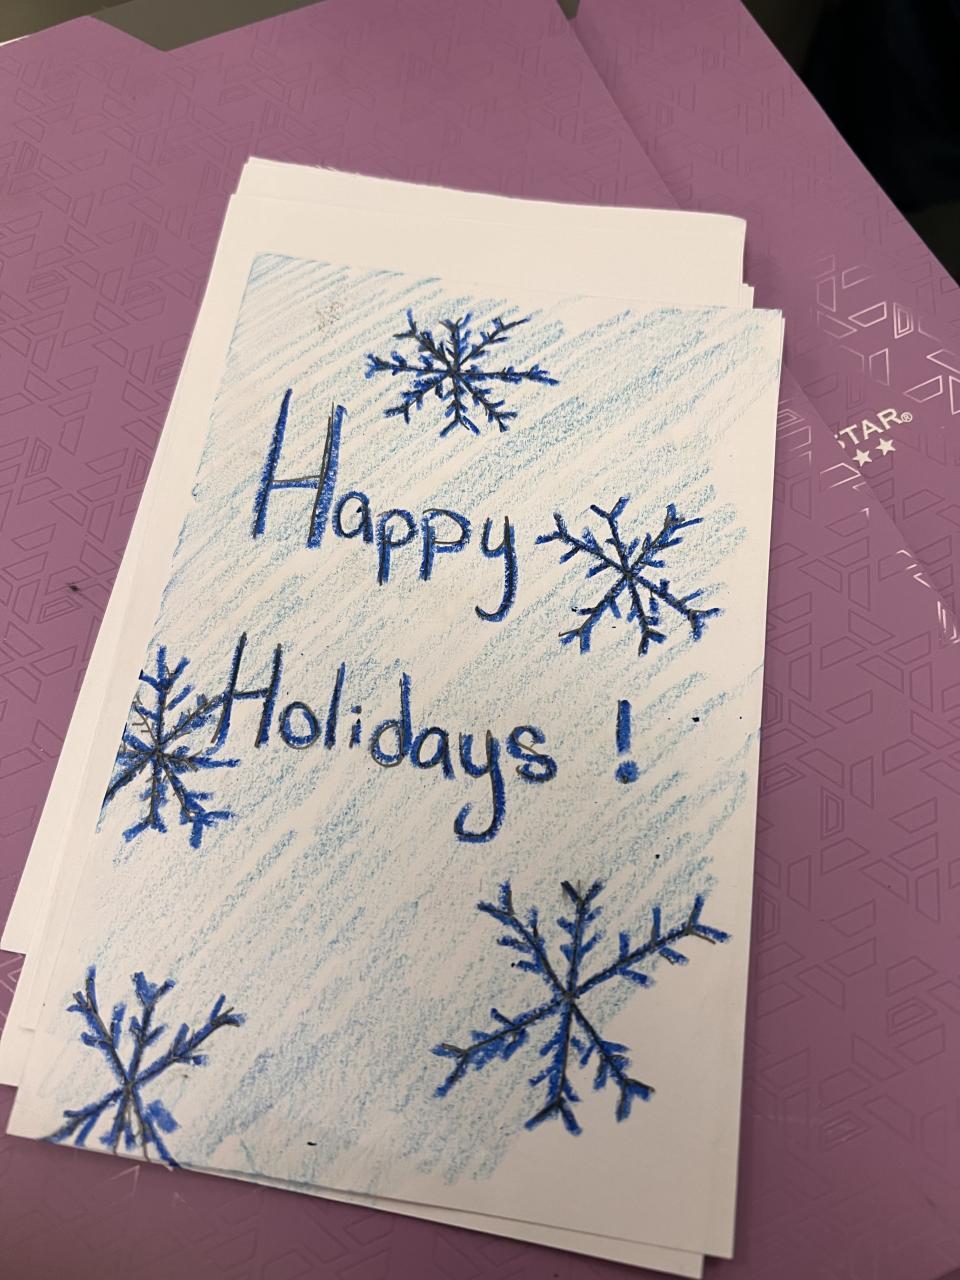 Happy
Holidays !
STAR®